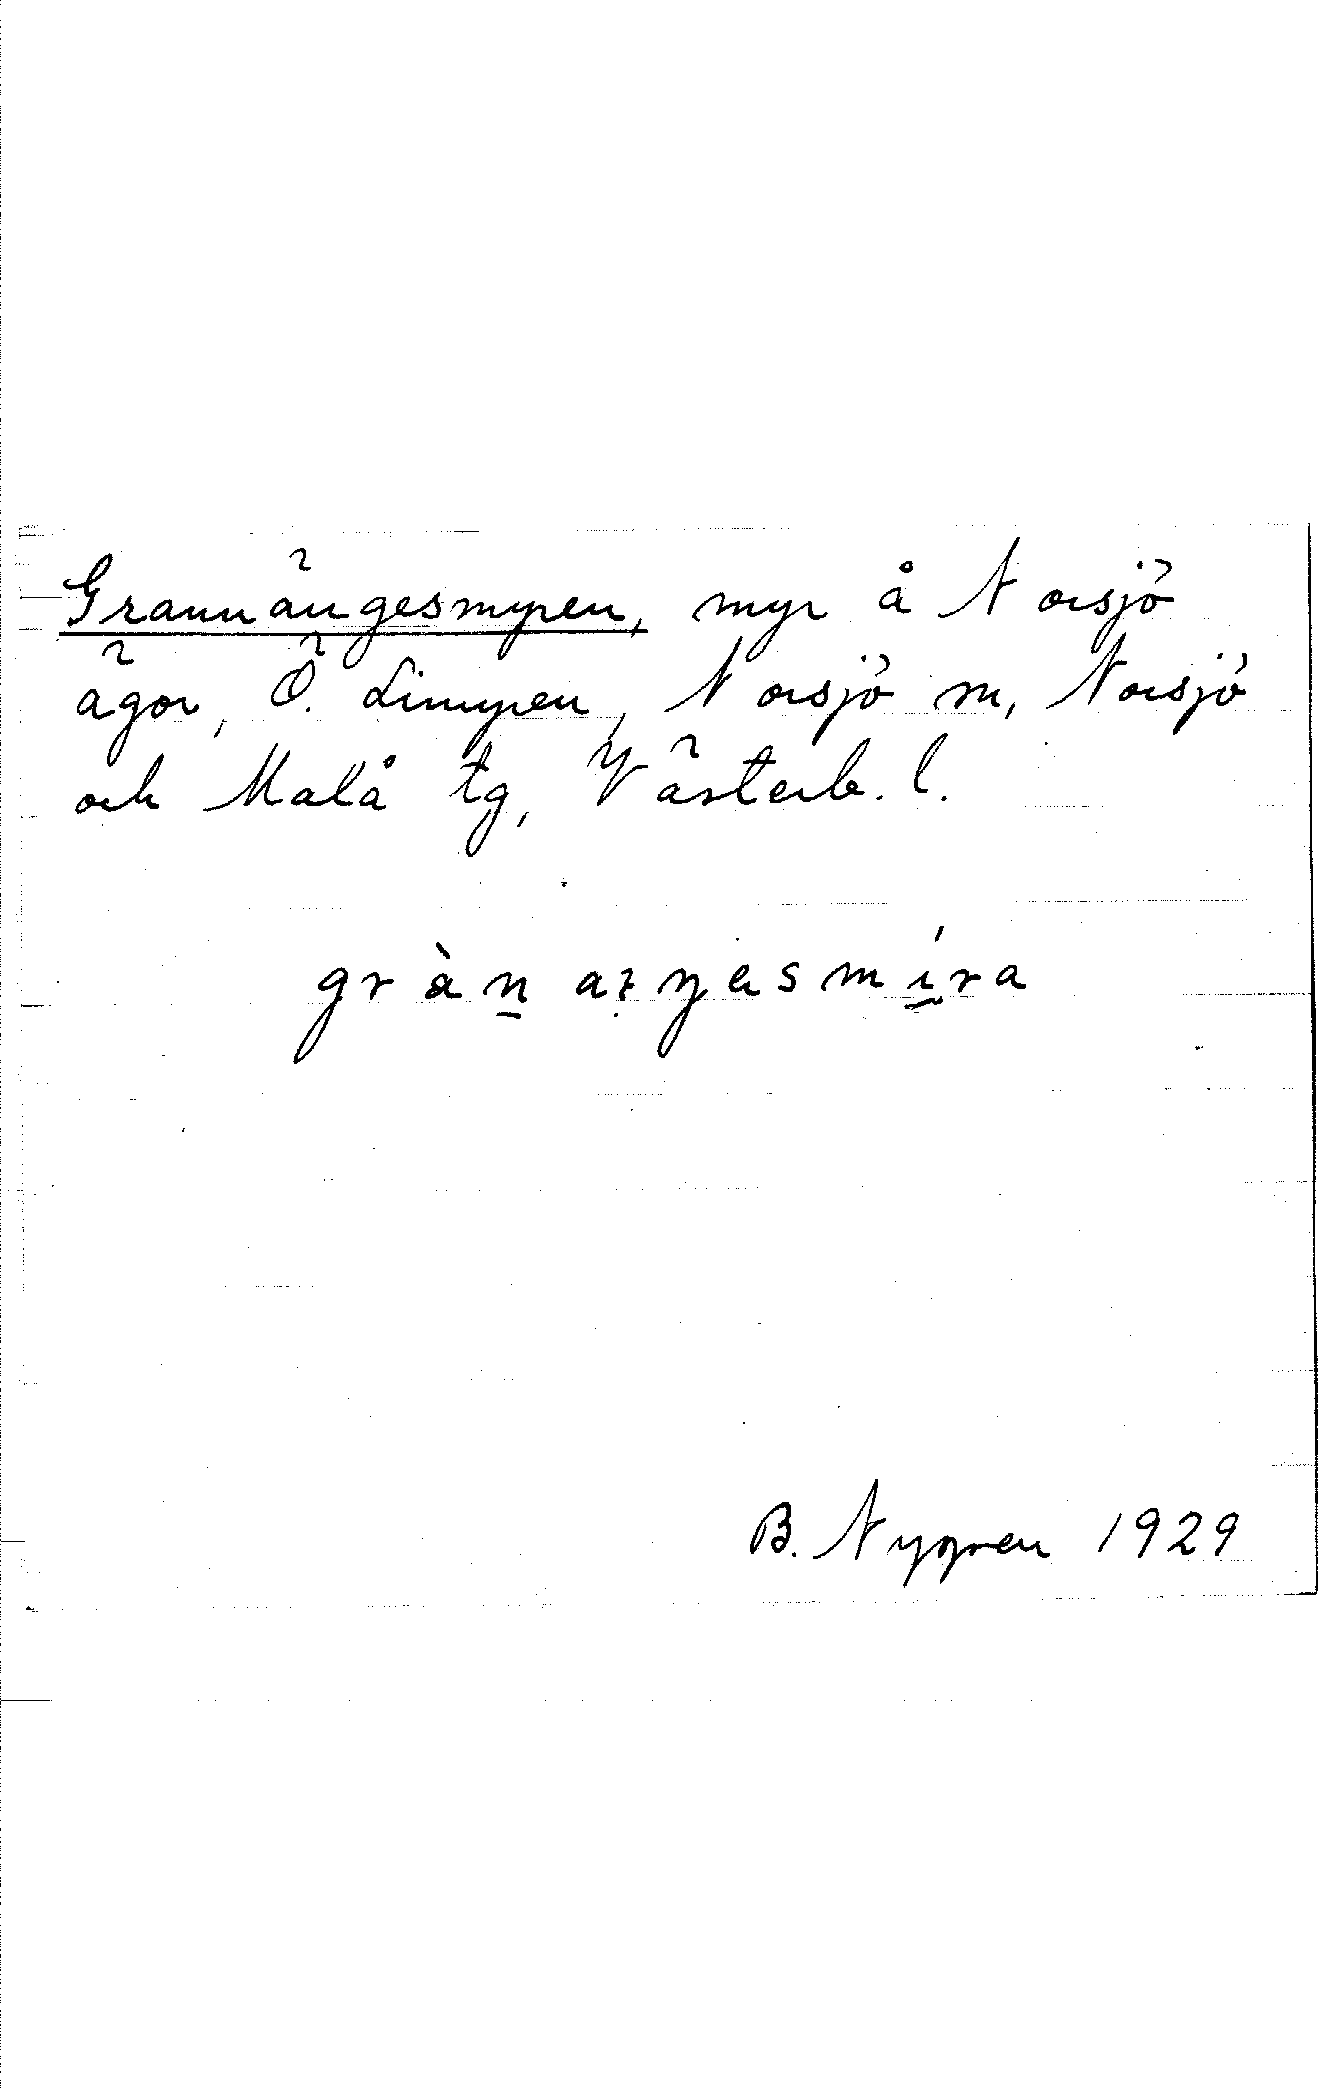 Grannängesmyren, myr å Norsjö
ägor, Ö. Linmyren, Norsjö sn, Norsjö
och Malå tg, Västerb. l.
B. Nygren 1929